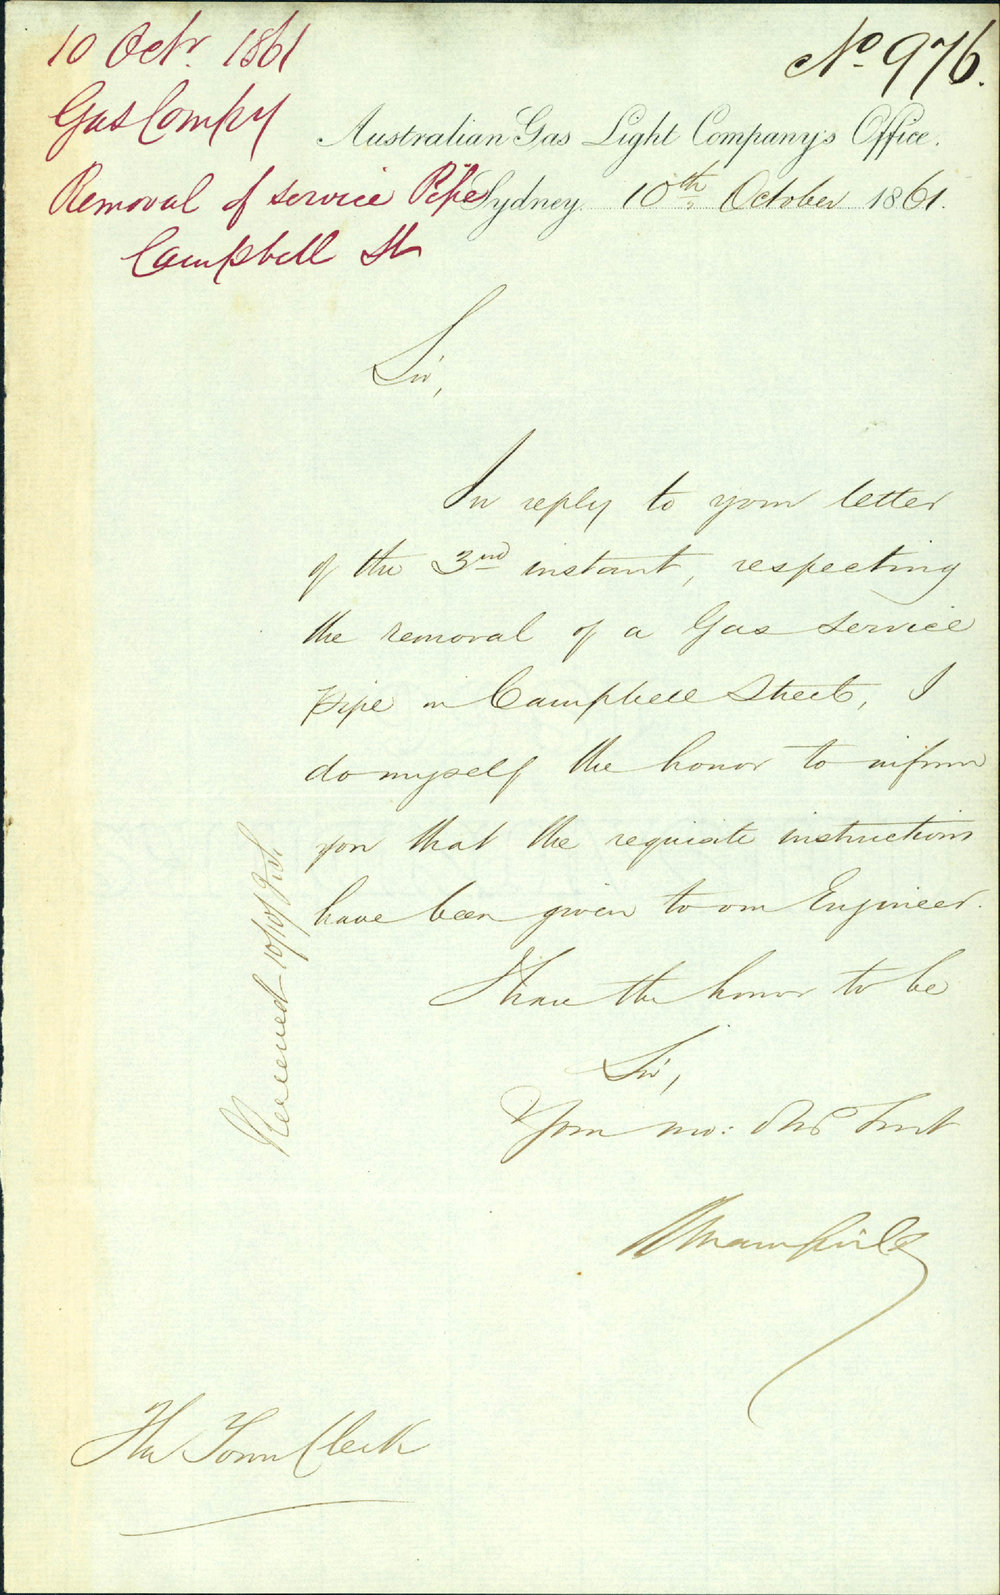 10 Octr. 1861
Gas Compy
Removal of service Pipe
Campbell St
No. 976.
Australian Gas Light Company's Office.
Sydney. 10th October 1861.
Sir,
In reply to your letter
of the 3nd instant, respecting
the removal of a Gas Service
Pipe in Campbell Street, I
do myself the honor to inform
you that the requisite instructions
have been given to our Engineer.
I have the honor to be
Sir,
Your mo: Obd Servt
The Town Clerk
Received 10/10/61